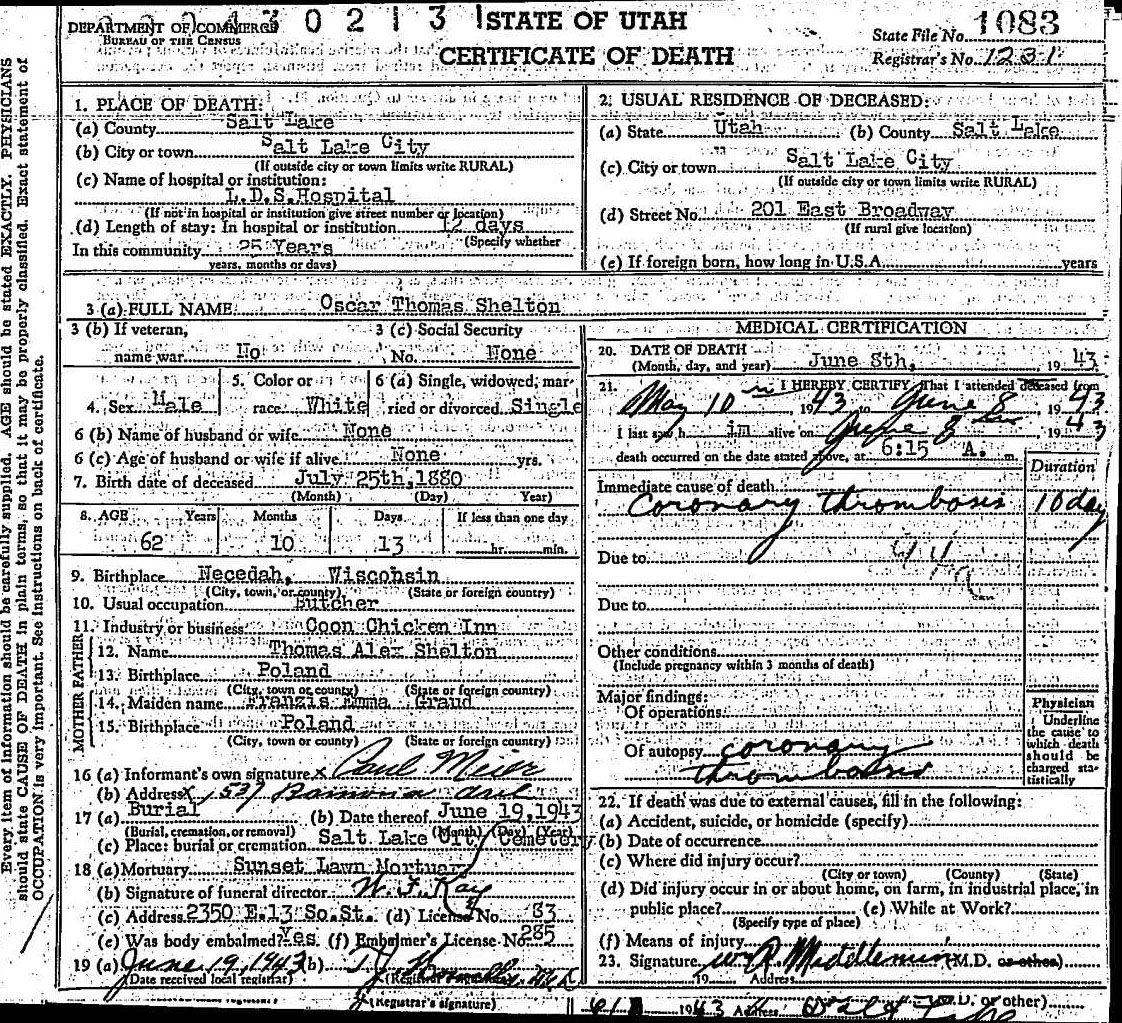 0 2 1 3 1
STATE OF UTAH
DEPARTMENT OF COMMERCE
BUREAU OF THE CENSUS
CERTIFICATE OF DEATH
State File No. 1083
Registrar's No. 1231
Every item of information should be carefully supplied. AGE should be stated EXACTLY. PHYSICIANS
should state CAUSE OF DEATH in plain terms, so that it may be properly classified. Exact statement of
OCCUPATION is very important. See instructions on back of certificate.
1. PLACE OF DEATH:
(a) County Salt Lake
(b) City or town Salt Lake City
(If outside city or town limits write RURAL)
(c) Name of hospital or institution:
L.D.S.Hospital
(If not in hospital or institution give street number or location)
(d) Length of stay: In hospital or institution 12 days
(Specify whether
In this community 25 Years
years, months or days)
2. USUAL RESIDENCE OF DECEASED:
(a) State Utah (b) County Salt Lake
(c) City or town Salt Lake City
(If outside city or town limits write RURAL)
(d) Street No. 201 East Broadway
(If rural give location)
(e) If foreign born, how long in U.S.A. years
3 (a) FULL NAME Oscar Thomas Shelton
3 (b) If veteran, 3 (c) Social Security
name war No No. None
4. Sex Male 5. Color or race White 6 (a) Single, widowed, married or divorced Single
6 (b) Name of husband or wife None
6 (c) Age of husband or wife if alive None yrs.
7. Birth date of deceased July 25th,1880
(Month) (Day) Year)
8. AGE Years Months Days If less than one day
62 10 13 hr. min.
9. Birthplace Necedah, Wisconsin
(City, town, or county) (State or foreign country)
10. Usual occupation Butcher
11. Industry or business Coon Chicken Inn
FATHER
12. Name Thomas Alex Shelton
13. Birthplace Poland
(City, town or county) (State or foreign country)
MOTHER
14. Maiden name Franzis Emma Graud
15. Birthplace Poland
(City, town or county) (State or foreign country)
16 (a) Informant's own signature x Paul Meier
(b) Address X 1537 Ramona
17 (a) Burial (b) Date thereof June 19,1943
(Burial, cremation, or removal) (Month) (Day) (Year)
(c) Place: burial or cremation Salt Lake City Cemetery
18 (a) Mortuary Sunset Lawn Mortuary
(b) Signature of funeral director W. F. Kay
(c) Address 2350 E.13 So.St. (d) License No. 83
(e) Was body embalmed? Yes. (f) Embalmer's License No. 285
19 (a) June 19, 1943 (b)
(Date received local registrar) (Registrar's signature)
(Registrar's signature)
MEDICAL CERTIFICATION
20. DATE OF DEATH
(Month, day, and year) June 8th, 19 43
21. I HEREBY CERTIFY, That I attended deceased from
May 10 1943 to June 8 1943
I last saw h im alive on June 8 1943
death occurred on the date stated above, at 6:15 A. m.
Duration
Immediate cause of death
Coronary thrombosis 10 day
Due to 94a
Due to
Other conditions
(Include pregnancy within 3 months of death)
Major findings:
Of operations
Of autopsy coronary
thrombosis
Physician
Underline
the cause to
which death
should be
charged sta-
tistically
22. If death was due to external causes, fill in the following:
(a) Accident, suicide, or homicide (specify)
(b) Date of occurrence
(c) Where did injury occur?
(City or town) (County) (State)
(d) Did injury occur in or about home, on farm, in industrial place, in
public place? (e) While at Work?
(Specify type of place)
(f) Means of injury
23. Signature W R Middleman (M.D. or other)
19 Address
1943 M.D. or other)